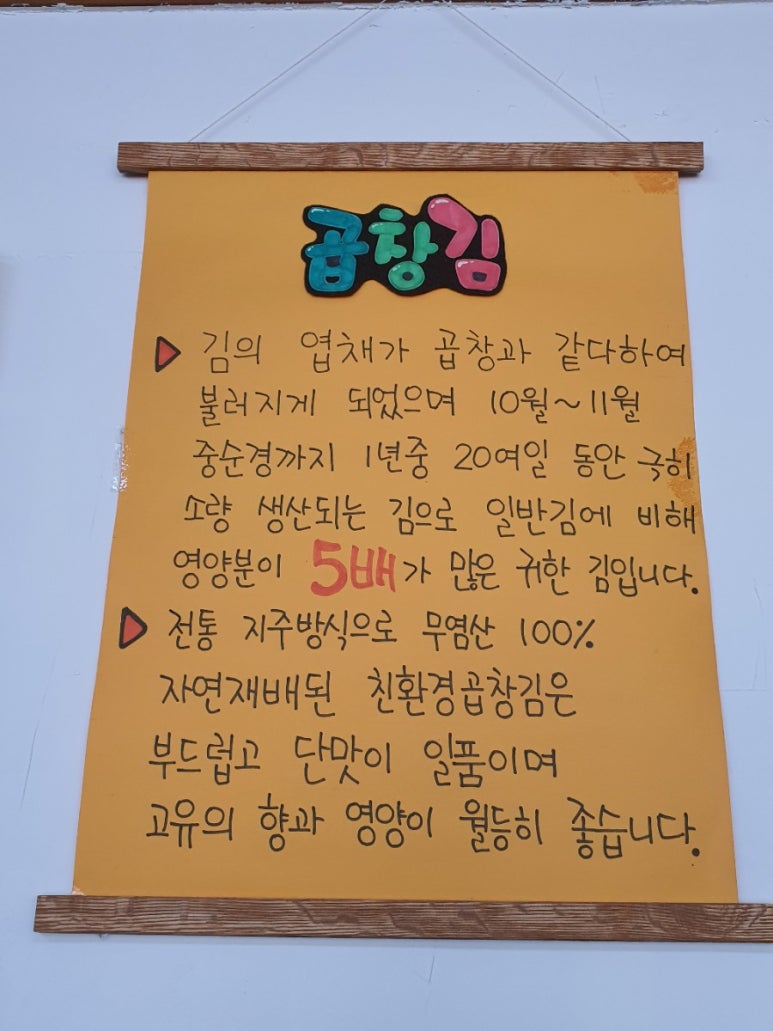 곱창김
김의 엽채가 곱창과 같다하여
불러지게 되었으며 10월~11월
중순경까지 1년중 20여일 동안 극히
소량 생산되는 김으로 일반김에 비해
영양분이 5배가 많은 귀한 김입니다.
전통 지주방식으로 무염산 100%
자연재배된 친환경곱창김은
부드럽고 단맛이 일품이며
고유의 향과 영양이 월등히 좋습니다.